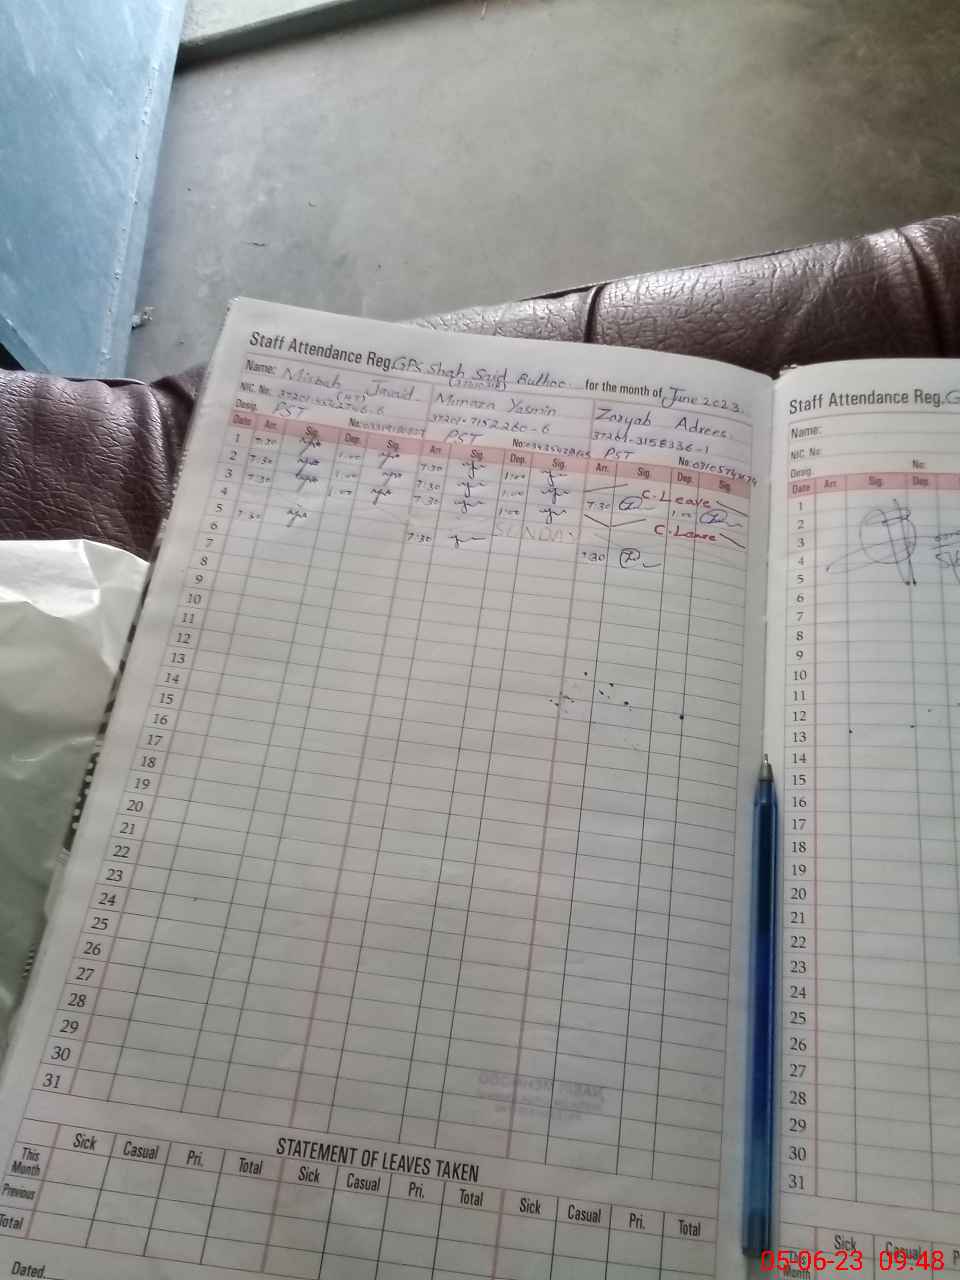 Staff Attendance Reg. GPS Shah Said Bulhoo for the month of June 2023.
Name: Misbah Javaid Munaza Yasmin Zoryab Adrees
NIC. No. 37201-7152260-6 37201-3158336-1
Desig. PST No: PST No: PST No:
Date Arr. Sig. Dep. Sig. Arr. Sig. Dep. Sig. Arr. Sig. Dep. Sig.
1 7:30 1:00 7:30 1:00 C. Leave
2 7:30 1:00 7:30 1:00 7:30 1:00
3 7:30 1:00 7:30 1:00 C. Leave
4 SUNDAY
5 7:30 7:30 7:30
6
7
8
9
10
11
12
13
14
15
16
17
18
19
20
21
22
23
24
25
26
27
28
29
30
31
STATEMENT OF LEAVES TAKEN
Sick Casual Pri. Total Sick Casual Pri. Total Sick Casual Pri. Total
This Month
Previous
Total
Dated
Staff Attendance Reg. G
Name:
NIC. No.
Desig. No:
Date Arr. Sig. Dep.
1
2
3
4
5
6
7
8
9
10
11
12
13
14
15
16
17
18
19
20
21
22
23
24
25
26
27
28
29
30
31
Sick Casual Pri.
This Month
05-06-23 09:48